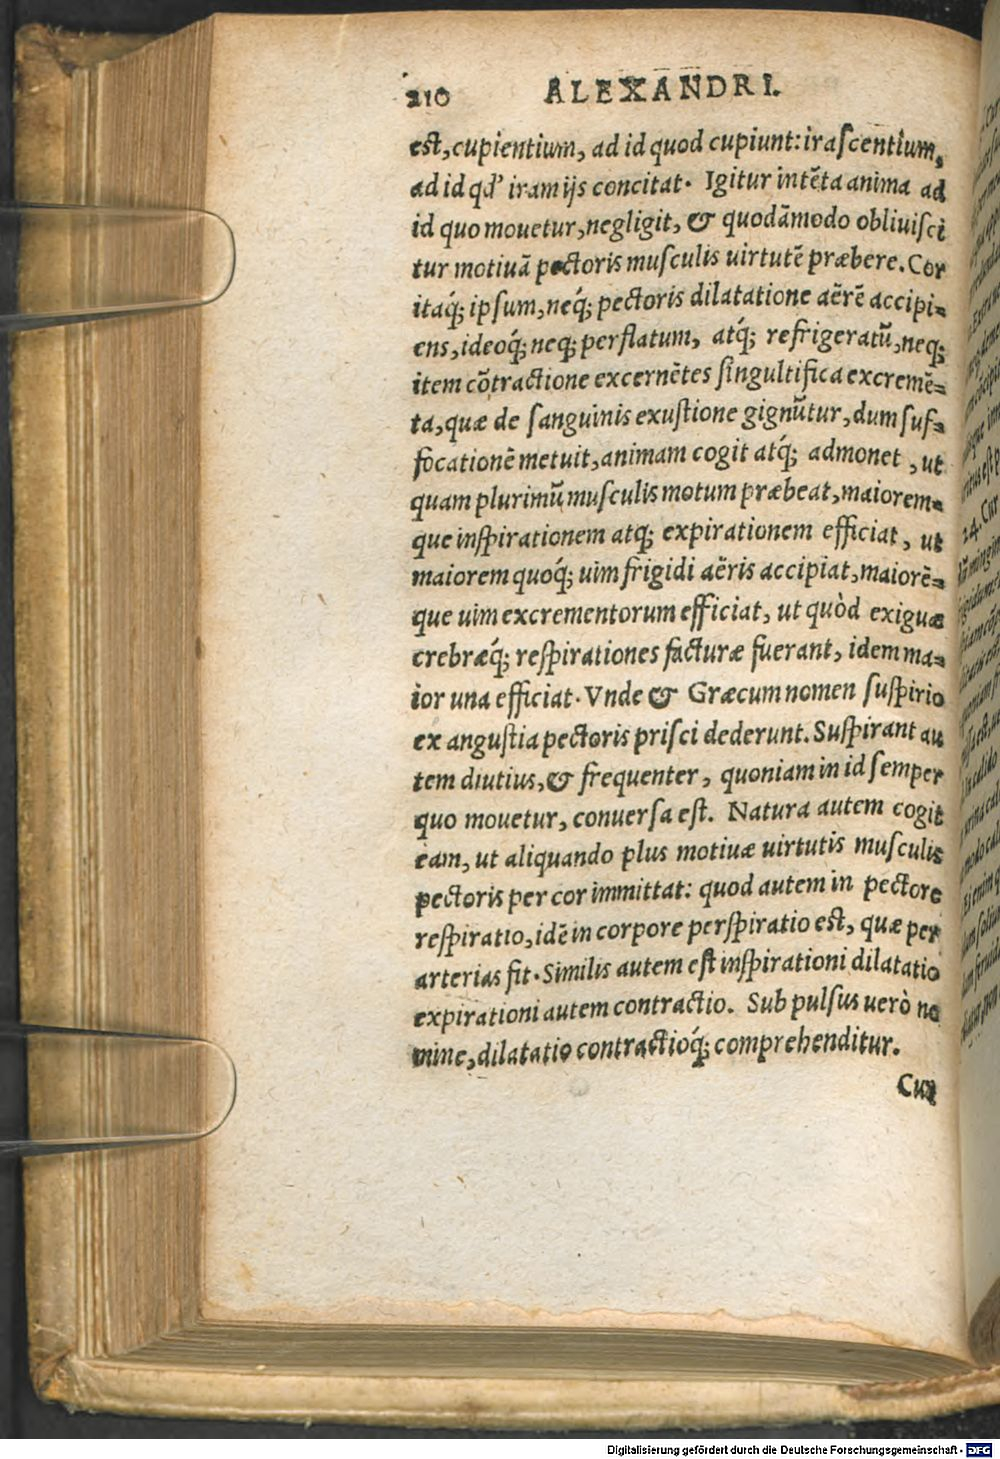 210 ALEXANDRI.
est, cupientium, ad id quod cupiunt: iraſcentium,
ad id qd' iram ijs concitat. Igitur intēta anima ad
id quo mouetur, negligit, & quodāmodo obliuiſci
tur motiuā pectoris muſculis uirtutē præbere. Cor
itaq́; ipſum, neq́; pectoris dilatatione aërē accipi-
ens, ideoq́; neq; perflatum, atq́; refrigeratū, neq;
item cōtractione excernētes ſingultifica excremē-
ta, quæ de ſanguinis exuſtione gignūtur, dum ſuf-
focationē metuit, animam cogit atq́; admonet, ut
quam plurimū muſculis motum præbeat, maiorem-
que inſpirationem atq; expirationem efficiat, ut
maiorem quoq́; uim frigidi aëris accipiat, maiorē-
que uim excrementorum efficiat, ut quòd exiguæ
crebræq́; reſpirationes facturæ fuerant, idem ma-
ior una efficiat. Vnde & Græcum nomen ſuſpirio
ex anguſtia pectoris priſci dederunt. Suſpirant au
tem diutius, & frequenter, quoniam in id ſemper
quo mouetur, conuerſa eſt. Natura autem cogit
eam, ut aliquando plus motiuæ uirtutis muſculis
pectoris per cor immittat: quod autem in pectore
reſpiratio, idē in corpore perſpiratio est, quæ per
arterias fit. Similis autem eſt inſpirationi dilatatio
expirationi autem contractio. Sub pulſus uerò no
mine, dilatatio contractioq́; comprehenditur.
Cur
24. Cur
Digitalisierung gefördert durch die Deutsche Forschungsgemeinschaft - DFG